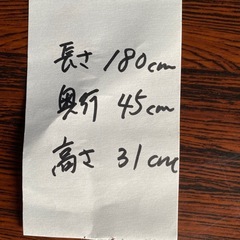 長さ 180cm
奥行 45cm
高さ 31cm